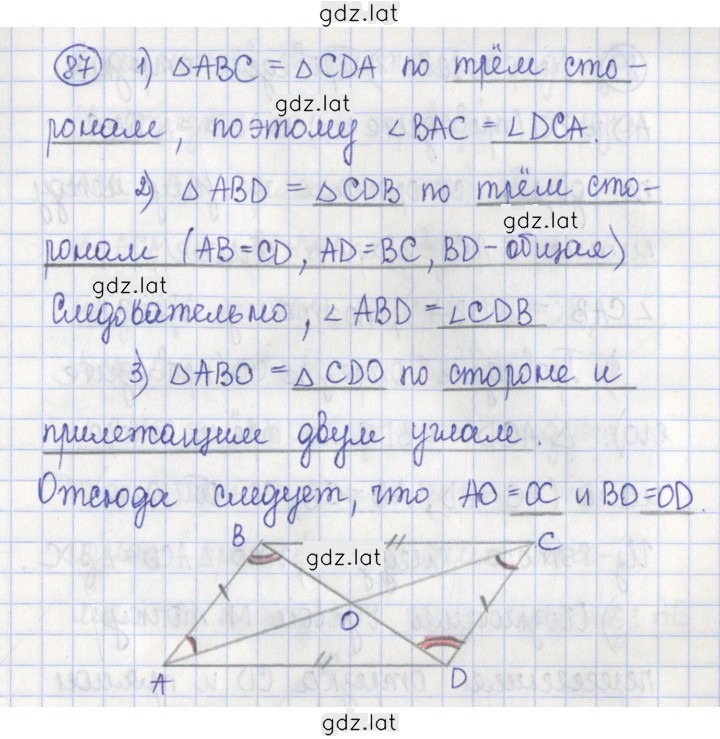 gdz.lat
87 1) △ABC = △CDA по трём сто-
gdz.lat
ронам, поэтому ∠BAC = ∠DCA.
2) △ABD = △CDB по трём сто-
gdz.lat
ронам (AB=CD, AD=BC, BD-общая)
gdz.lat
Следовательно, ∠ABD = ∠CDB
3) △ABO = △CDO по стороне и
прилежащим двум углам.
Отсюда следует, что, AO=OC и BO=OD.
B C
gdz.lat
O
A D
gdz.lat